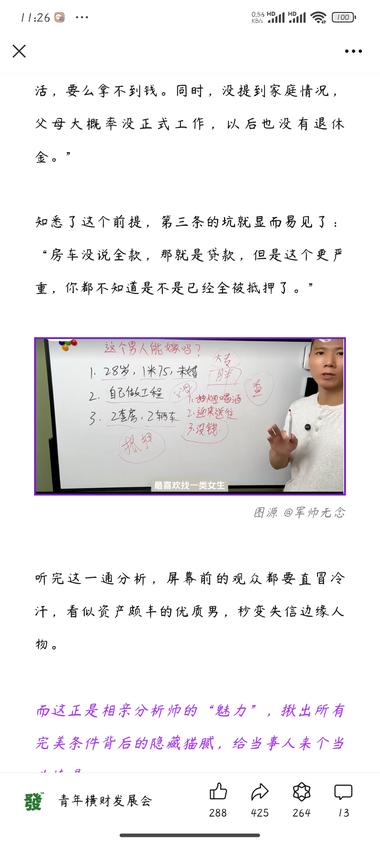 11:26
0.56 KB/s HD HD 100
活，要么拿不到钱。同时，没提到家庭情况，
父母大概率没正式工作，以后也没有退休
金。”
知悉了这个前提，第三条的坑就显而易见了：
“房车没说全款，那就是贷款，但是这个更严
重，你都不知道是不是已经全被抵押了。”
这个男人能嫁吗？
1. 28岁，1米75，未婚
2. 自己做工程
3. 2套房，2辆车
大专
3.没钱
最喜欢找一类女生
图源 @军师无念
听完这一通分析，屏幕前的观众都要直冒冷
汗，看似资产颇丰的优质男，秒变失信边缘人
物。
而这正是相亲分析师的“魅力”，揪出所有
完美条件背后的隐藏猫腻，给当事人来个当
發
青年横财发展会
288
425
264
13